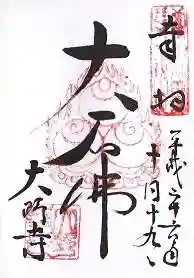 奉拝
平成二十六年
十月十九日
大石佛
大野寺